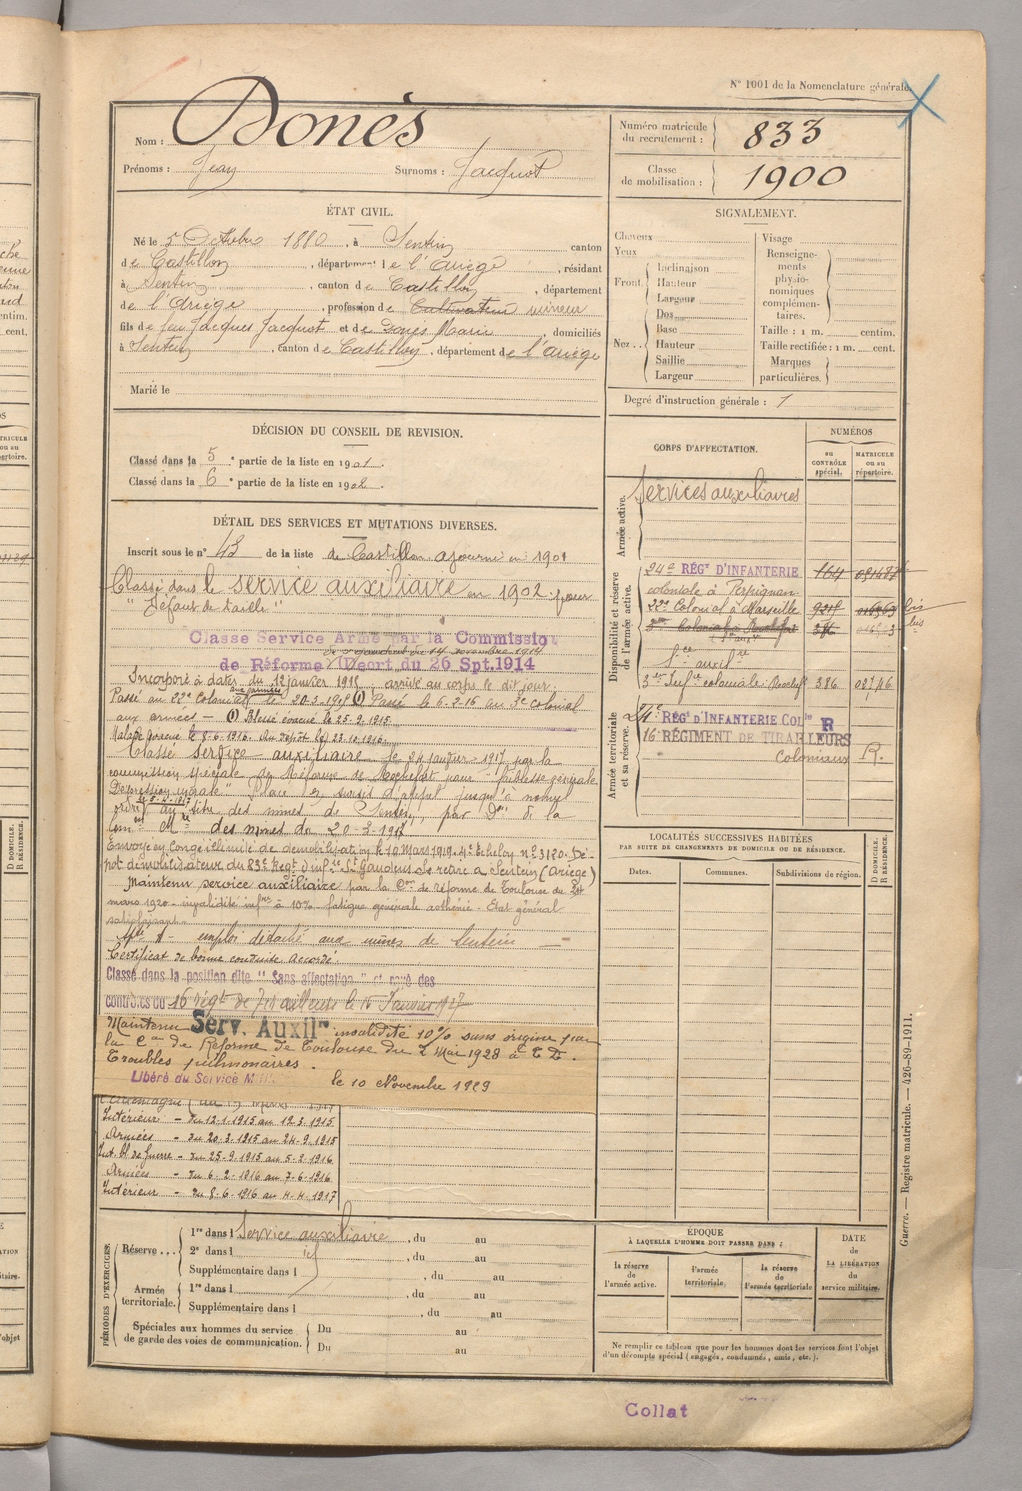 N° 1001 de la Nomenclature générale.
Nom : Donès
Prénoms : Jean Surnoms : Jacquot
Numéro matricule du recrutement : 833
Classe de mobilisation : 1900
ÉTAT CIVIL.
Né le 5 Octobre 1880, à Sentein canton
de Castillon, département de l'Ariège, résidant
à Sentein, canton de Castillon, département
de l'Ariège, profession de Cultivateur mineur
fils de feu Jacques Jacquot et de Donès Marie domiciliés
à Sentein, canton de Castillon, département de l'Ariège
Marié le
SIGNALEMENT.
Cheveux
Yeux
Front. Inclinaison
Hauteur
Largeur
Nez .. Dos
Base
Hauteur
Saillie
Largeur
Visage
Renseignements physionomiques complémentaires.
Taille : 1 m. centim.
Taille rectifiée : 1 m. cent.
Marques particulières.
Degré d'instruction générale : 1
DÉCISION DU CONSEIL DE REVISION.
Classé dans la 5e partie de la liste en 1901.
Classé dans la 6e partie de la liste en 1902.
DÉTAIL DES SERVICES ET MUTATIONS DIVERSES.
Inscrit sous le n° 43 de la liste de Castillon ajourné en 1901
Classé dans le service auxiliaire en 1902 : pour
"Défaut de taille"
Classe Service Armé par la Commission
de Réforme Décrt du 26 Spt.1914
Incorporé à dater du 12 janvier 1915 arrivé au corps le dit jour.
Passé au 22e Colonial aux armées le 20-3-1915 (1) Passé le 6-2-16 au 3e colonial
aux armées — (1) Blessé évacué le 25-9-1915.
Malade évacué le 8-6-1916. Au dépôt le 23-10-1916
Classé service auxiliaire le 24 janvier 1917 par la
commission spéciale de Réforme de Rochefort pour "faiblesse générale
Dépression morale" Placé en sursis d'appel jusqu'à nouvel
ordre au titre des mines de Sentein, par Don de la
des mines du 20-3-1917
Envoyé en Congé illimité de démobilisation le 10 Mars 1919. 4e Echelon n° 3120. Dé-
pôt démobilisateur du 83e Régt d'infie St Gaudens. Se retire à Sentein (Ariège)
Maintenu service auxiliaire par la Con de réforme de Toulouse du
mars 1920 - invalidité infre à 10% - fatigue générale asthénie - Etat général
satisfaisant.
emploi détaché aux mines de Sentein —
Certificat de bonne conduite Accordé.
Classé dans la position dite "Sans affectation" et rayé des
contrôles du 16 régt de Tirailleurs le 10 Janvier 1927
Maintenu Serv. Auxilre invalidité 10% sans origine par
la Con de Réforme de Toulouse du 2 Mai 1928
Troubles pulmonaires.
Libéré du Service Mil. le 10 Novembre 1929
Intérieur - du 12-1-1915 au 12-3-1915
Armées - du 20-3-1915 au 24-9-1915
Int. Bl. de Guerre - du 25-9-1915 au 5-2-1916
Armées - du 6-2-1916 au 7-6-1916
Intérieur - du 8-6-1916 au 4-4-1917
CORPS D'AFFECTATION.
NUMÉROS
au CONTRÔLE spécial.
MATRICULE ou au répertoire.
Armée active.
Services auxiliaires
Disponibilité et réserve de l'armée active.
24e RÉGt D'INFANTERIE 164
coloniale à Perpignan
22e Colonial à Marseille
3e Colonial à Rochefort 386
Sce auxilre
3e Infie coloniale Rochefort 386
Armée territoriale et sa réserve.
24e RÉGt D'INFANTERIE COLle R
16 RÉGIMENT DE TIRAILLEURS
Coloniaux R.
LOCALITÉS SUCCESSIVES HABITÉES
PAR SUITE DE CHANGEMENTS DE DOMICILE OU DE RÉSIDENCE.
Dates. Communes. Subdivisions de région. D DOMICILE. R RÉSIDENCE.
PÉRIODES D'EXERCICES.
Réserve ... 1re dans l Service auxiliaire, du au
2e dans l id, du au
Supplémentaire dans l, du au
Armée territoriale. 1re dans l, du au
Supplémentaire dans l, du au
Spéciales aux hommes du service de garde des voies de communication. Du au
Du au
ÉPOQUE
À LAQUELLE L'HOMME DOIT PASSER DANS :
la réserve de l'armée active.
l'armée territoriale.
la réserve de l'armée territoriale
DATE de LA LIBÉRATION du service militaire.
Ne remplir ce tableau que pour les hommes dont les services font l'objet
d'un décompte spécial (engagés, condamnés, omis, etc.).
Guerre. — Registre matricule. — 426-89-1911.
Collat